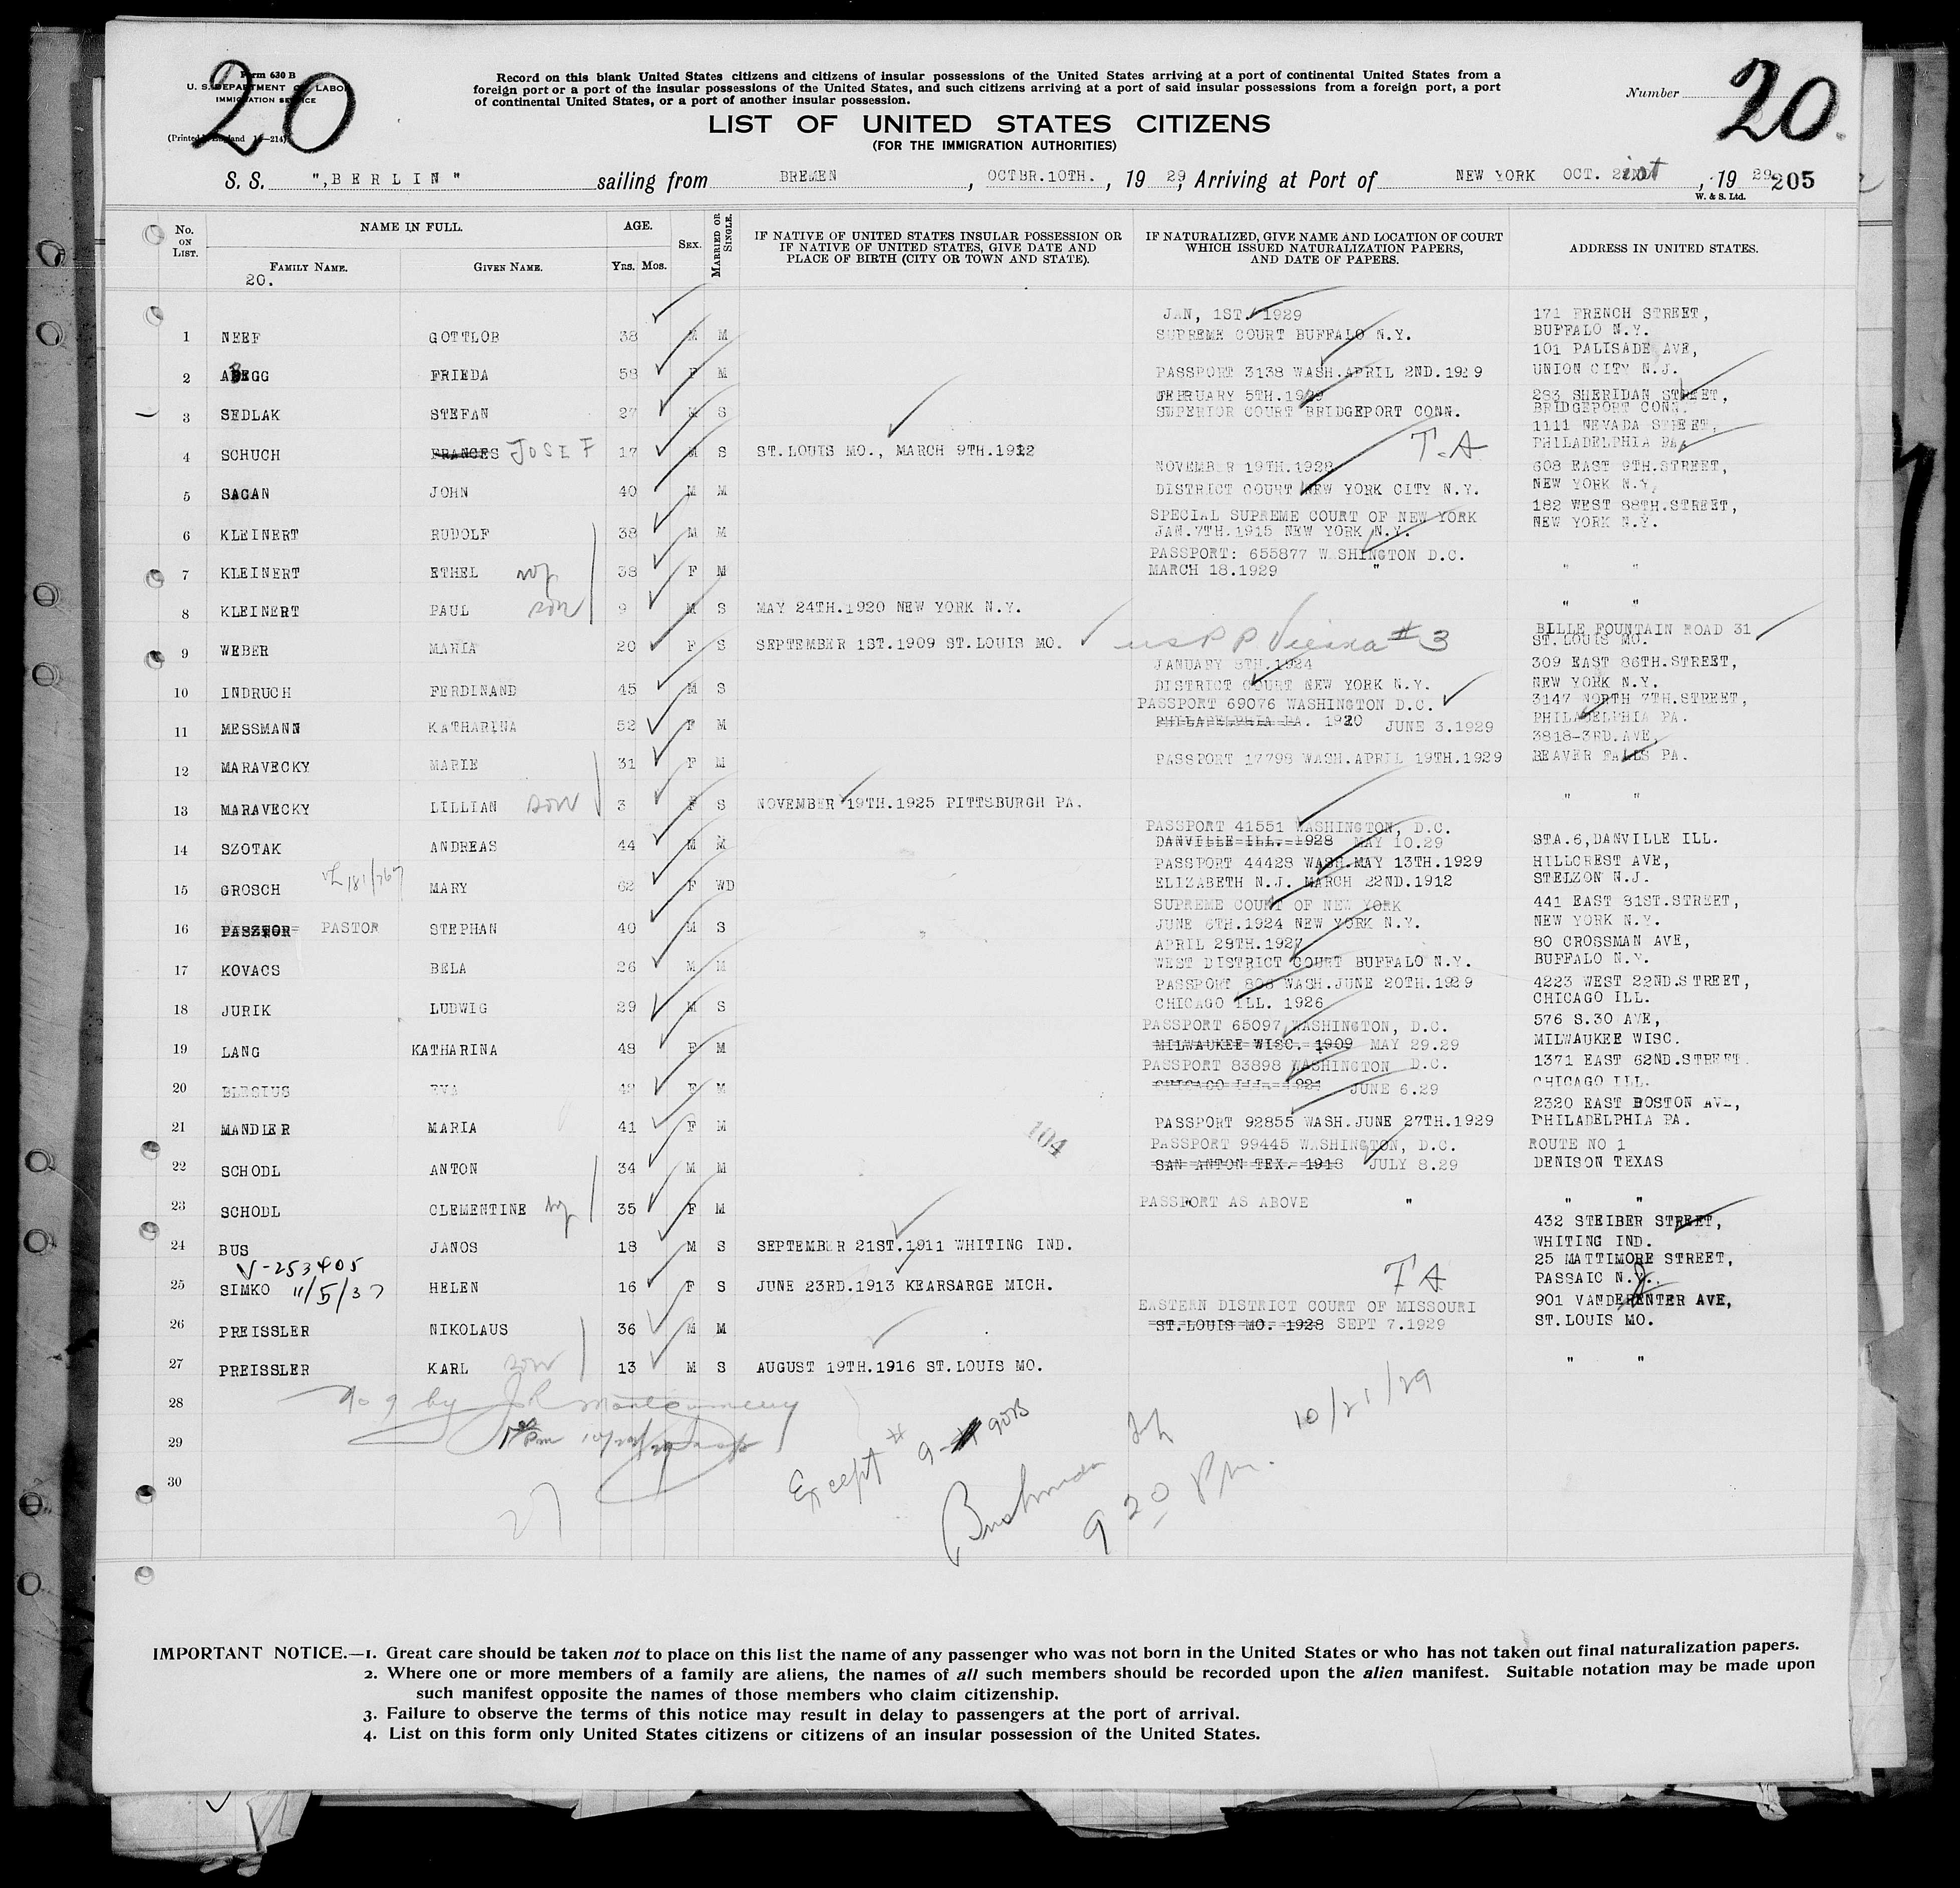 20
Form 630 B
U. S. DEPARTMENT OF LABOR
IMMIGRATION SERVICE
Record on this blank United States citizens and citizens of insular possessions of the United States arriving at a port of continental United States from a
foreign port or a port of the insular possessions of the United States, and such citizens arriving at a port of said insular possessions from a foreign port, a port
of continental United States, or a port of another insular possession.
Number 20.
LIST OF UNITED STATES CITIZENS
(FOR THE IMMIGRATION AUTHORITIES)
S. S. ",BERLIN" sailing from BREMEN, OCTBR.10TH., 1929, Arriving at Port of NEW YORK OCT. 1929 205
W. & S. Ltd.
No. ON LIST. NAME IN FULL. AGE. SEX. MARRIED OR SINGLE. IF NATIVE OF UNITED STATES INSULAR POSSESSION OR IF NATIVE OF UNITED STATES, GIVE DATE AND PLACE OF BIRTH (CITY OR TOWN AND STATE). IF NATURALIZED, GIVE NAME AND LOCATION OF COURT WHICH ISSUED NATURALIZATION PAPERS, AND DATE OF PAPERS. ADDRESS IN UNITED STATES.
FAMILY NAME. GIVEN NAME. Yrs. Mos.
20.
JAN, 1ST. 1929 171 FRENCH STREET,
1 NEEF GOTTLOB 38 M M SUPREME COURT BUFFALO N.Y. BUFFALO N.Y.
101 PALISADE AVE,
2 ABEGG FRIEDA 58 F M PASSPORT 3138 WASH.APRIL 2ND.1929 UNION CITY N.J.
FEBRUARY 5TH.1929 283 SHERIDAN STREET,
3 SEDLAK STEFAN 27 M S SUPERIOR COURT BRIDGEPORT CONN. BRIDGEPORT CONN.
1111 NEVADA STREET,
4 SCHUCH FRANCES JOSEF 17 M S ST.LOUIS MO., MARCH 9TH.1912 T.A PHILADELPHIA PA
NOVEMBER 19TH.1928 608 EAST 9TH.STREET,
5 SAGAN JOHN 40 M M DISTRICT COURT NEW YORK CITY N.Y. NEW YORK N.Y.
SPECIAL SUPREME COURT OF NEW YORK 182 WEST 88TH.STREET,
6 KLEINERT RUDOLF 38 M M JAN.7TH.1915 NEW YORK N.Y. NEW YORK N.Y.
PASSPORT: 655877 WASHINGTON D.C.
7 KLEINERT ETHEL wf 38 F M MARCH 18.1929 " " "
8 KLEINERT PAUL son 9 M S MAY 24TH.1920 NEW YORK N.Y. " "
BILLE FOUNTAIN ROAD 31
9 WEBER MARIA 20 F S SEPTEMBER 1ST.1909 ST.LOUIS MO. US PP Vienna #3 ST.LOUIS MO.
JANUARY 8TH.1924 309 EAST 86TH.STREET,
10 INDRUCH FERDINAND 45 M S DISTRICT COURT NEW YORK N.Y. NEW YORK N.Y.
PASSPORT 69076 WASHINGTON D.C. 3147 NORTH 7TH.STREET,
11 MESSMANN KATHARINA 52 F M PHILADELPHIA PA. 1920 JUNE 3.1929 PHILADELPHIA PA.
3818-3RD.AVE,
12 MARAVECKY MARIE 31 F M PASSPORT 17798 WASH.APRIL 19TH.1929 BEAVER FALLS PA.
13 MARAVECKY LILLIAN son 3 F S NOVEMBER 19TH.1925 PITTSBURGH PA. " "
PASSPORT 41551 WASHINGTON, D.C.
14 SZOTAK ANDREAS 44 M M DANVILLE ILL. 1928 MAY 10.29 STA.6,DANVILLE ILL.
PASSPORT 44428 WASH.MAY 13TH.1929 HILLCREST AVE,
15 GROSCH MARY 62 F WD ELIZABETH N.J. MARCH 22ND.1912 STELZON N.J.
SUPREME COURT OF NEW YORK 441 EAST 81ST.STREET,
16 PASZTOR PASTOR STEPHAN 40 M S JUNE 6TH.1924 NEW YORK N.Y. NEW YORK N.Y.
APRIL 29TH.1927 80 CROSSMAN AVE,
17 KOVACS BELA 26 M M WEST DISTRICT COURT BUFFALO N.Y. BUFFALO N.Y.
PASSPORT 808 WASH.JUNE 20TH.1929 4223 WEST 22ND.STREET,
18 JURIK LUDWIG 29 M S CHICAGO ILL. 1926 CHICAGO ILL.
PASSPORT 65097 WASHINGTON, D.C. 576 S.30 AVE,
19 LANG KATHARINA 48 F M MILWAUKEE WISC. 1909 MAY 29.29 MILWAUKEE WISC.
PASSPORT 83898 WASHINGTON D.C. 1371 EAST 62ND.STREET.
20 BLESIUS EVA 49 F M CHICAGO ILL. 1921 JUNE 6.29 CHICAGO ILL.
2320 EAST BOSTON AVE,
21 MANDLER MARIA 41 F M 104 PASSPORT 92855 WASH.JUNE 27TH.1929 PHILADELPHIA PA.
PASSPORT 99445 WASHINGTON, D.C. ROUTE NO 1
22 SCHODL ANTON 34 M M SAN ANTON TEX. 1918 JULY 8.29 DENISON TEXAS
23 SCHODL CLEMENTINE wf 35 F M PASSPORT AS ABOVE " " "
432 STEIBER STREET,
24 BUS JANOS 18 M S SEPTEMBER 21ST.1911 WHITING IND. WHITING IND.
V-253405 25 MATTIMORE STREET,
25 SIMKO 11/5/37 HELEN 16 F S JUNE 23RD.1913 KEARSARGE MICH. TA PASSAIC N.Y.
EASTERN DISTRICT COURT OF MISSOURI 901 VANDERENTER AVE,
26 PREISSLER NIKOLAUS 36 M M ST.LOUIS MO. 1928 SEPT 7.1929 ST.LOUIS MO.
27 PREISSLER KARL son 13 M S AUGUST 19TH.1916 ST.LOUIS MO. " "
28 No 9 by J R Montgomery
29 Except # 9 10/21/29
30
27 9 20 Pm.
IMPORTANT NOTICE.—1. Great care should be taken not to place on this list the name of any passenger who was not born in the United States or who has not taken out final naturalization papers.
2. Where one or more members of a family are aliens, the names of all such members should be recorded upon the alien manifest. Suitable notation may be made upon
such manifest opposite the names of those members who claim citizenship.
3. Failure to observe the terms of this notice may result in delay to passengers at the port of arrival.
4. List on this form only United States citizens or citizens of an insular possession of the United States.